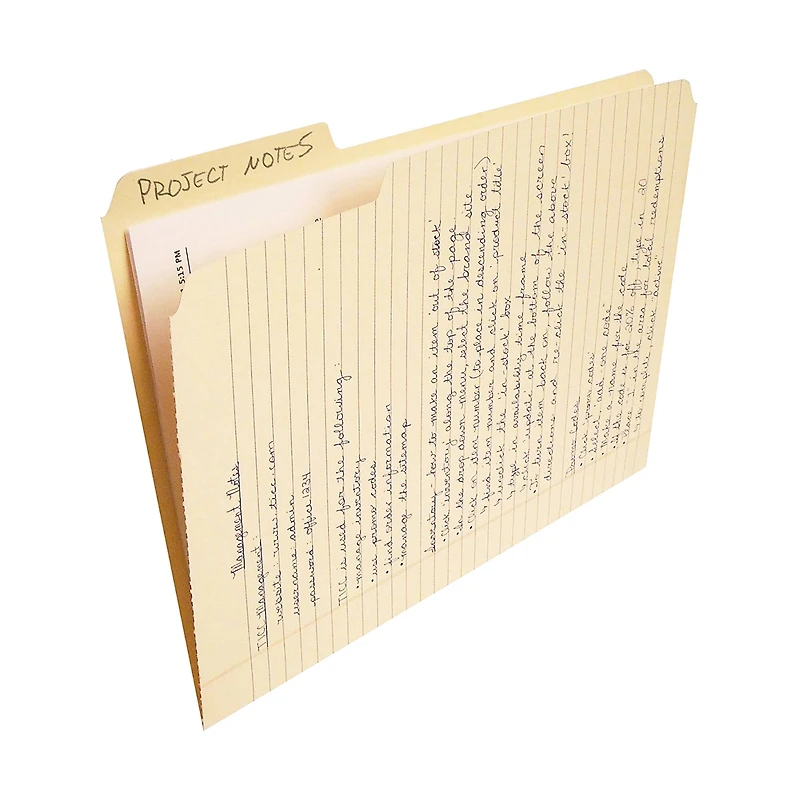 PROJECT NOTES
5:15 PM
Management Notes
TICC Management:
website: www.ticc.com
username: admin
password: office1234
TICC is used for the following:
• manage inventory
• use promo codes
• find order information
• manage the sitemap
Inventory - how to make an item 'out of stock'
• Click 'inventory' along the top of the page
• In the drop down menu, select the brand site
• Click on item number (to place in descending order)
↳ find item number and click on 'product title'
↳ unclick the 'in-stock' box
↳ type in availability time frame
↳ click 'update' at the bottom of the screen
• To turn item back on, follow the above
directions and re-click the 'in-stock' box!
Promo Codes
• Click 'promo codes'
• Select 'add one code'
• Make a name for the code
• If the code is for 20% off, type in 20
• Place 1 in the area for total redemptions
↳ to compile, click "active"